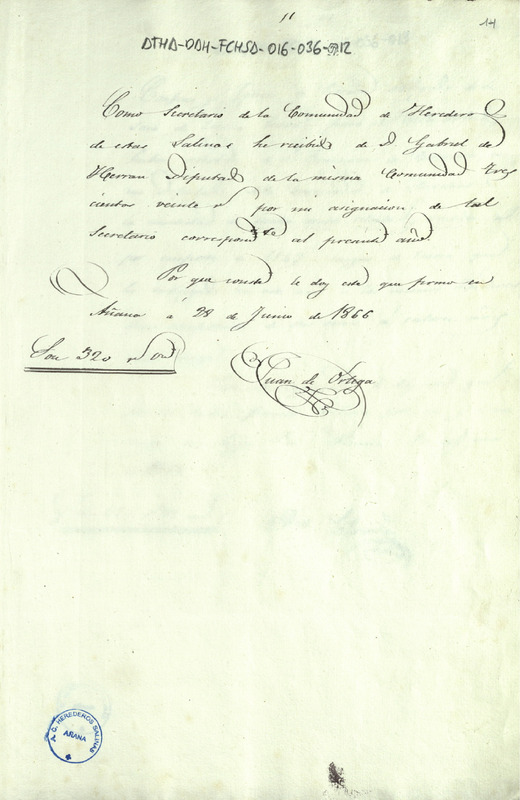 11
14
ATHA-DAH-FCHSA-016-036-12
Como Secretario de la Comunidad de Herederos
de estas Salinas he recibido de D. Gabriel de
Herran Diputado de la misma Comunidad tres
cientos veinte rs por mi asignacion de tal
Secretario correspondte al presente año
Por que conste le doy este que firmo en
Añana á 28 de Junio de 1866
Son 320 rs
Juan de Ortega
A. C. HEREDEROS SALINAS
AÑANA